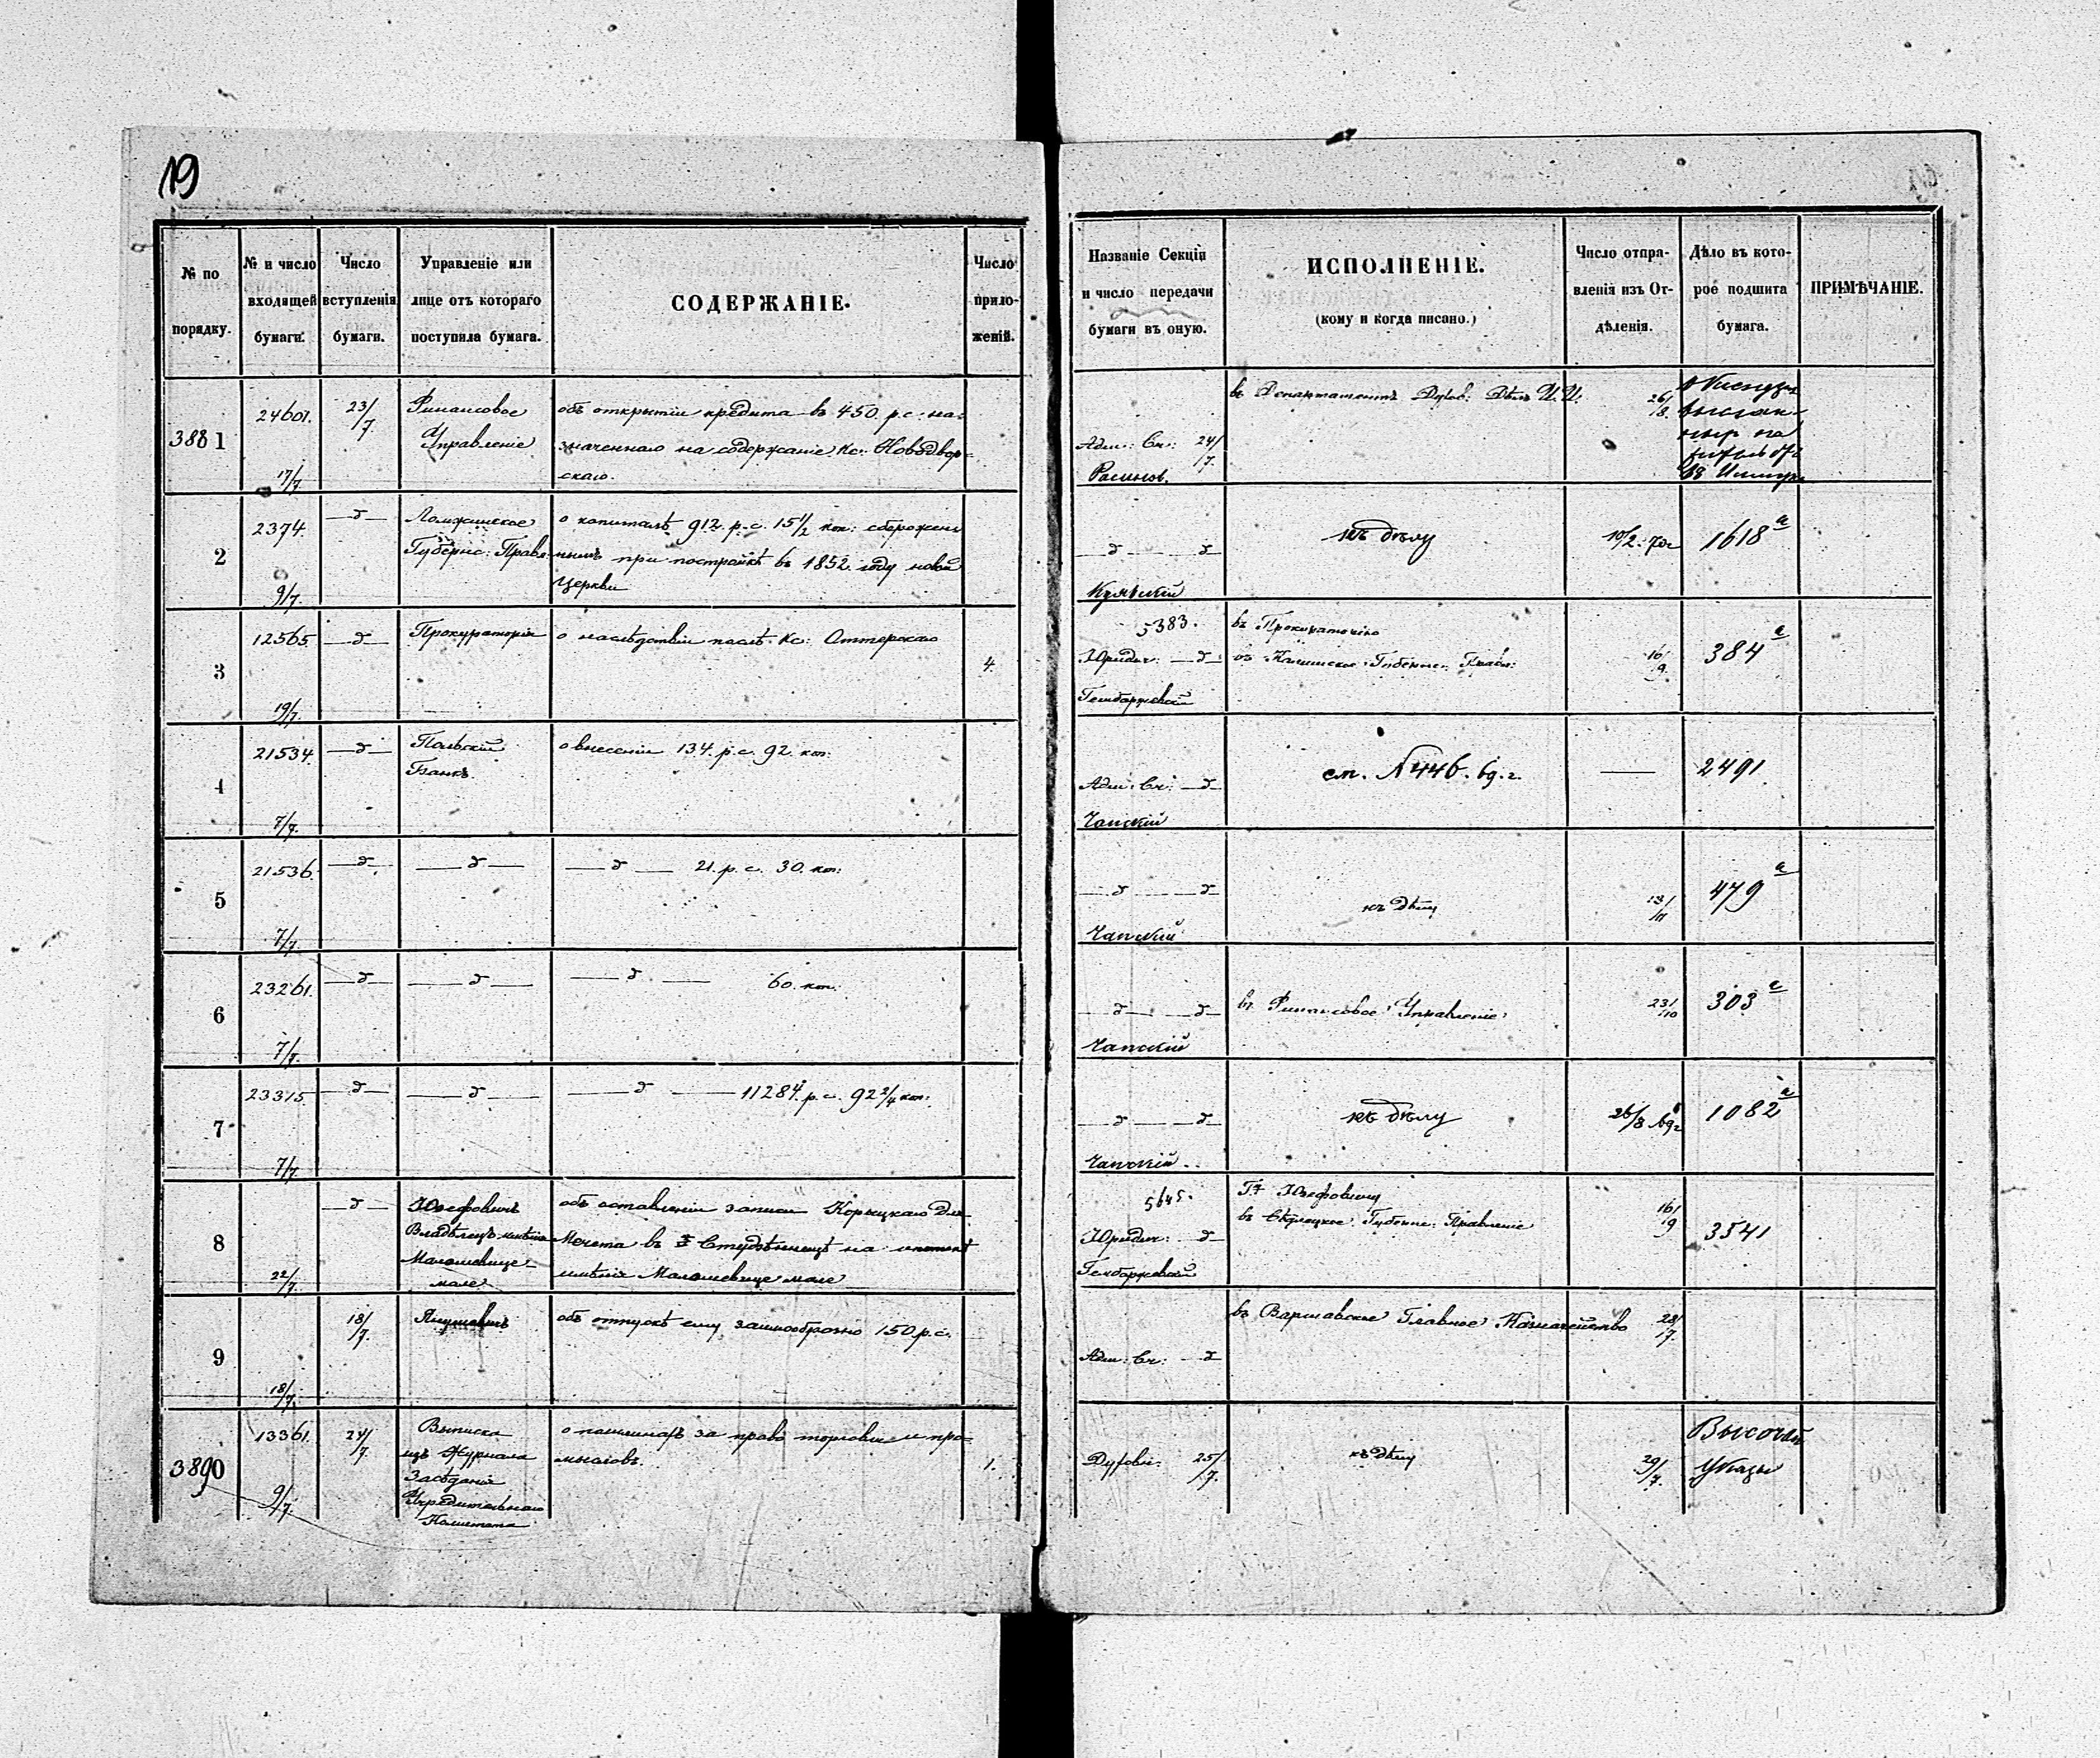 19
№ по порядку.
№ и число входящей бумаги.
Число вступленія бумаги.
Управленіе или лице отъ котораго поступила бумага.
СОДЕРЖАНІЕ.
Число приложеній.
Названіе Секціи и число передачи бумаги въ оную.
ИСПОЛНЕНІЕ.
(кому и когда писано.)
Число отправленія изъ Отдѣленія.
Дѣло въ которое подшита бумага.
ПРИМѢЧАНІЕ.
3881
24601.
17/7.
23/7.
Финансовое
Управленіе
объ открытіи кредита въ 450 р.с. на=
значеннаго на содержаніе Кс: Новодвор=
скаго.
Адм: Сч: 24/7.
въ Департаментъ Духов: Дѣлъ И. И.
26/8.
2
2374.
9/7.
—д—
Ломжинское
Губернс: Правл:
о капиталѣ 912 р.с. 15 1/2 коп: сбережен
нымъ при постройкѣ въ 1852 году новой
Церкви
—д— —д
къ дѣлу
10/2. 70 г
1618 а
3
12565.
19/7.
—д—
Прокураторія
о наслѣдствѣ послѣ Кс:
4.
5383.
Юридич: —д—
Гембаржевскій
въ Прокураторію
въ Калишское Губернс: Правл:
16/9.
384 а
4
21534.
7/7.
—д—
Польскій
Банкъ.
о внесеніи 134. р.с. 92. коп:
Адм: Сч: —д—
Чапскій
см. № 446. 69. г.
—
2491
5
21536.
7/7.
—д—
—д—
—д— 21. р. с. 30. коп:
—д— —д—
Чапскій
къ дѣлу
13/11
479 а
6
23261.
7/7.
—д—
—д—
—д— 60. коп:
—д— —д—
Чапскій
въ Финансовое Управленіе
23/10
303 а
7
23315.
7/7.
—д—
—д—
—д— 11284. р. с. 92 2/4 коп:
—д— —д—
Чапскій
къ дѣлу
26/8 69 г
1082 а
8
22/7.
—д—
Юзефовичъ
Владѣлецъ имѣнія
Малашевице
мале
объ оставленіи записи Корыцкаго для
Мечета въ Студзянкѣ на ипотекѣ
имѣнія Малашевице мале
5645.
Юридич: —д—
Гембаржевскій
Г. Юзефовичу
въ Сѣдлецкое Губернс: Правленіе
16/9
3541
9
18/7.
18/7.
объ отпускѣ ему заимообразно 150 р. с.
Адм: Сч: —д
въ Варшавское Главное Казначейство
28/7.
3890
13361.
9/7.
24/7.
Выписка
изъ Журнала
Засѣданія
Учредительнаго
Комитета
о пошлинахъ за право торговли и про=
мысловъ.
1.
Духовн: 25/7.
къ дѣлу
29/7.
Высочай
Указы